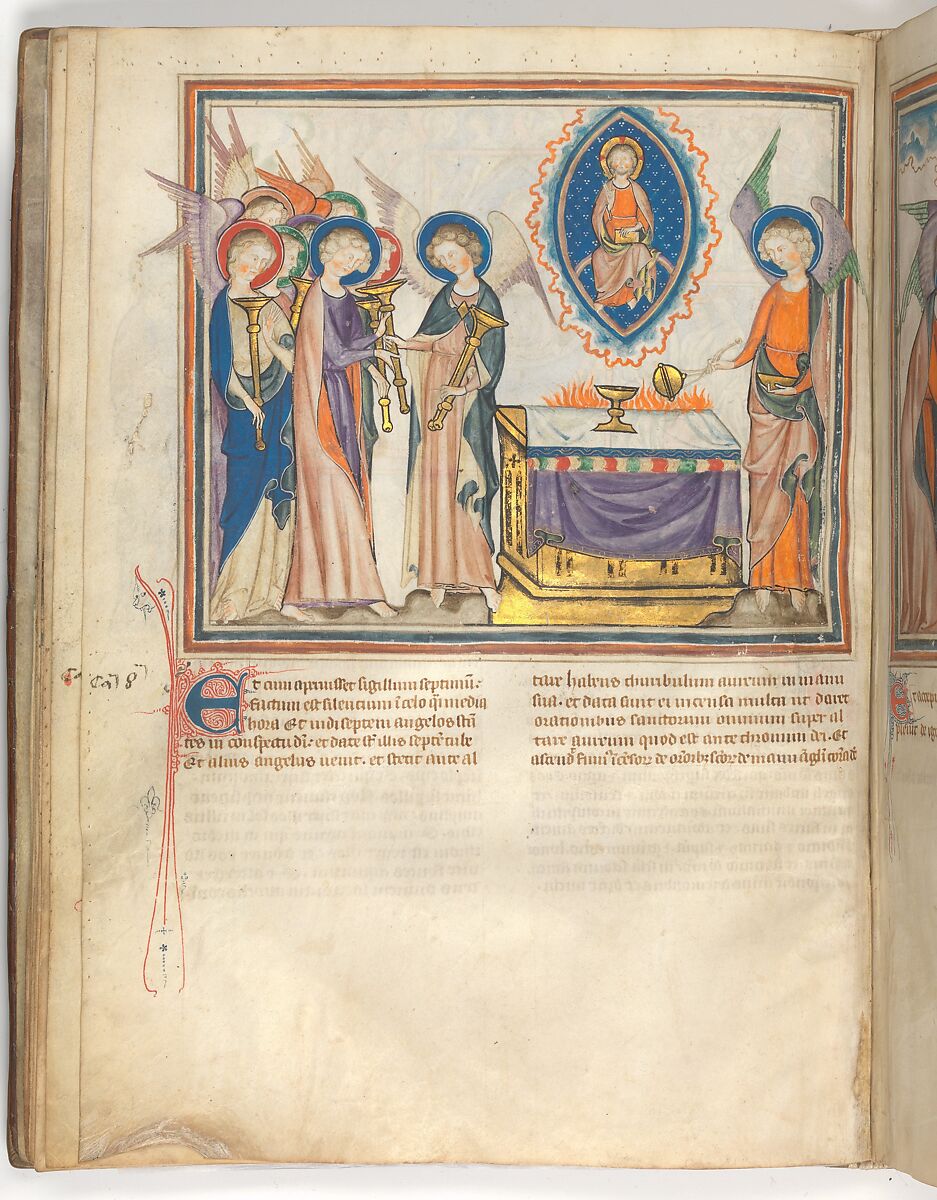 Ca) 8
Et cum apruisset sigillum septimũ:
factum est silencium ĩ celo q̃i media
hora Et uidi septem angelos stã
tes in conspectu dī: et date st̃ illis septẽ tube
Et alius angelus uenit. et stetit ante al
tare habens thuribulum aureum in manu
sua. et data sunt ei incensa multa ut daret
orationibus sanctorum omnium super al
tare aureum quod est ante thronum dei. Et
ascend̃ fum᾿ ĩcẽsor̃ de or̃oĩb᾿ sc̃or̃ de manu ãgl̃i corã dõ
Et